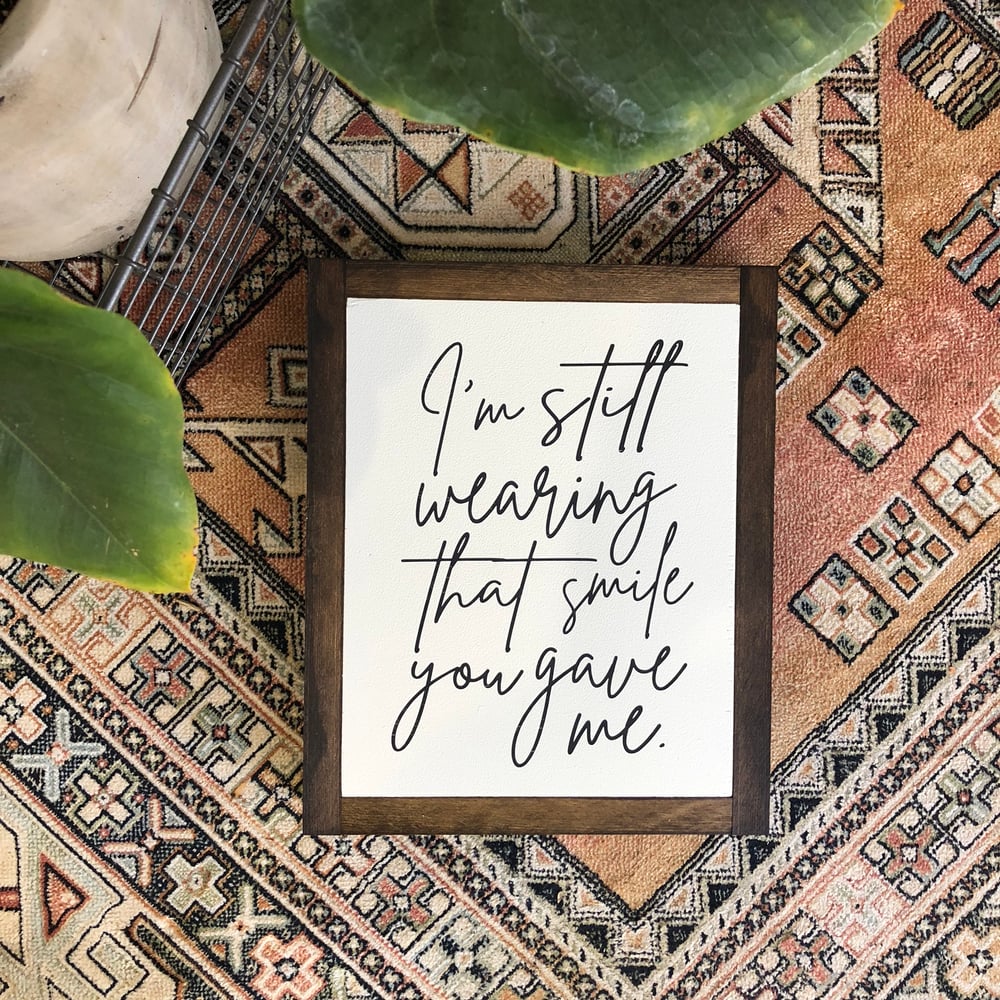 I'm still
wearing
that smile
you gave
me.